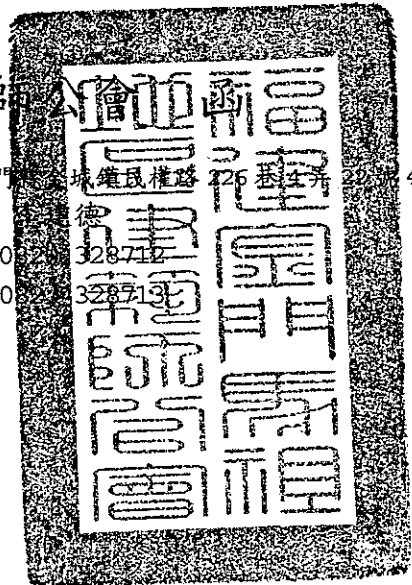 師公會 函
城鎮民權路 226 巷 4 弄 22 號 4
德
328712
328713
福建金門馬祖
地區建築師公會